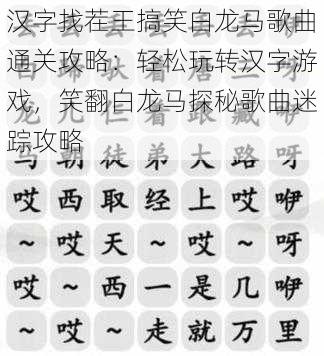 汉字找茬王搞笑白龙马歌曲
通关攻略：轻松玩转汉字游
戏，笑翻白龙马探秘歌曲迷
踪攻略
马朝徒弟大路呀
哎西取经上哎咿
~哎天~哎~呀
哎~西一是几咿
~哎~走就万里